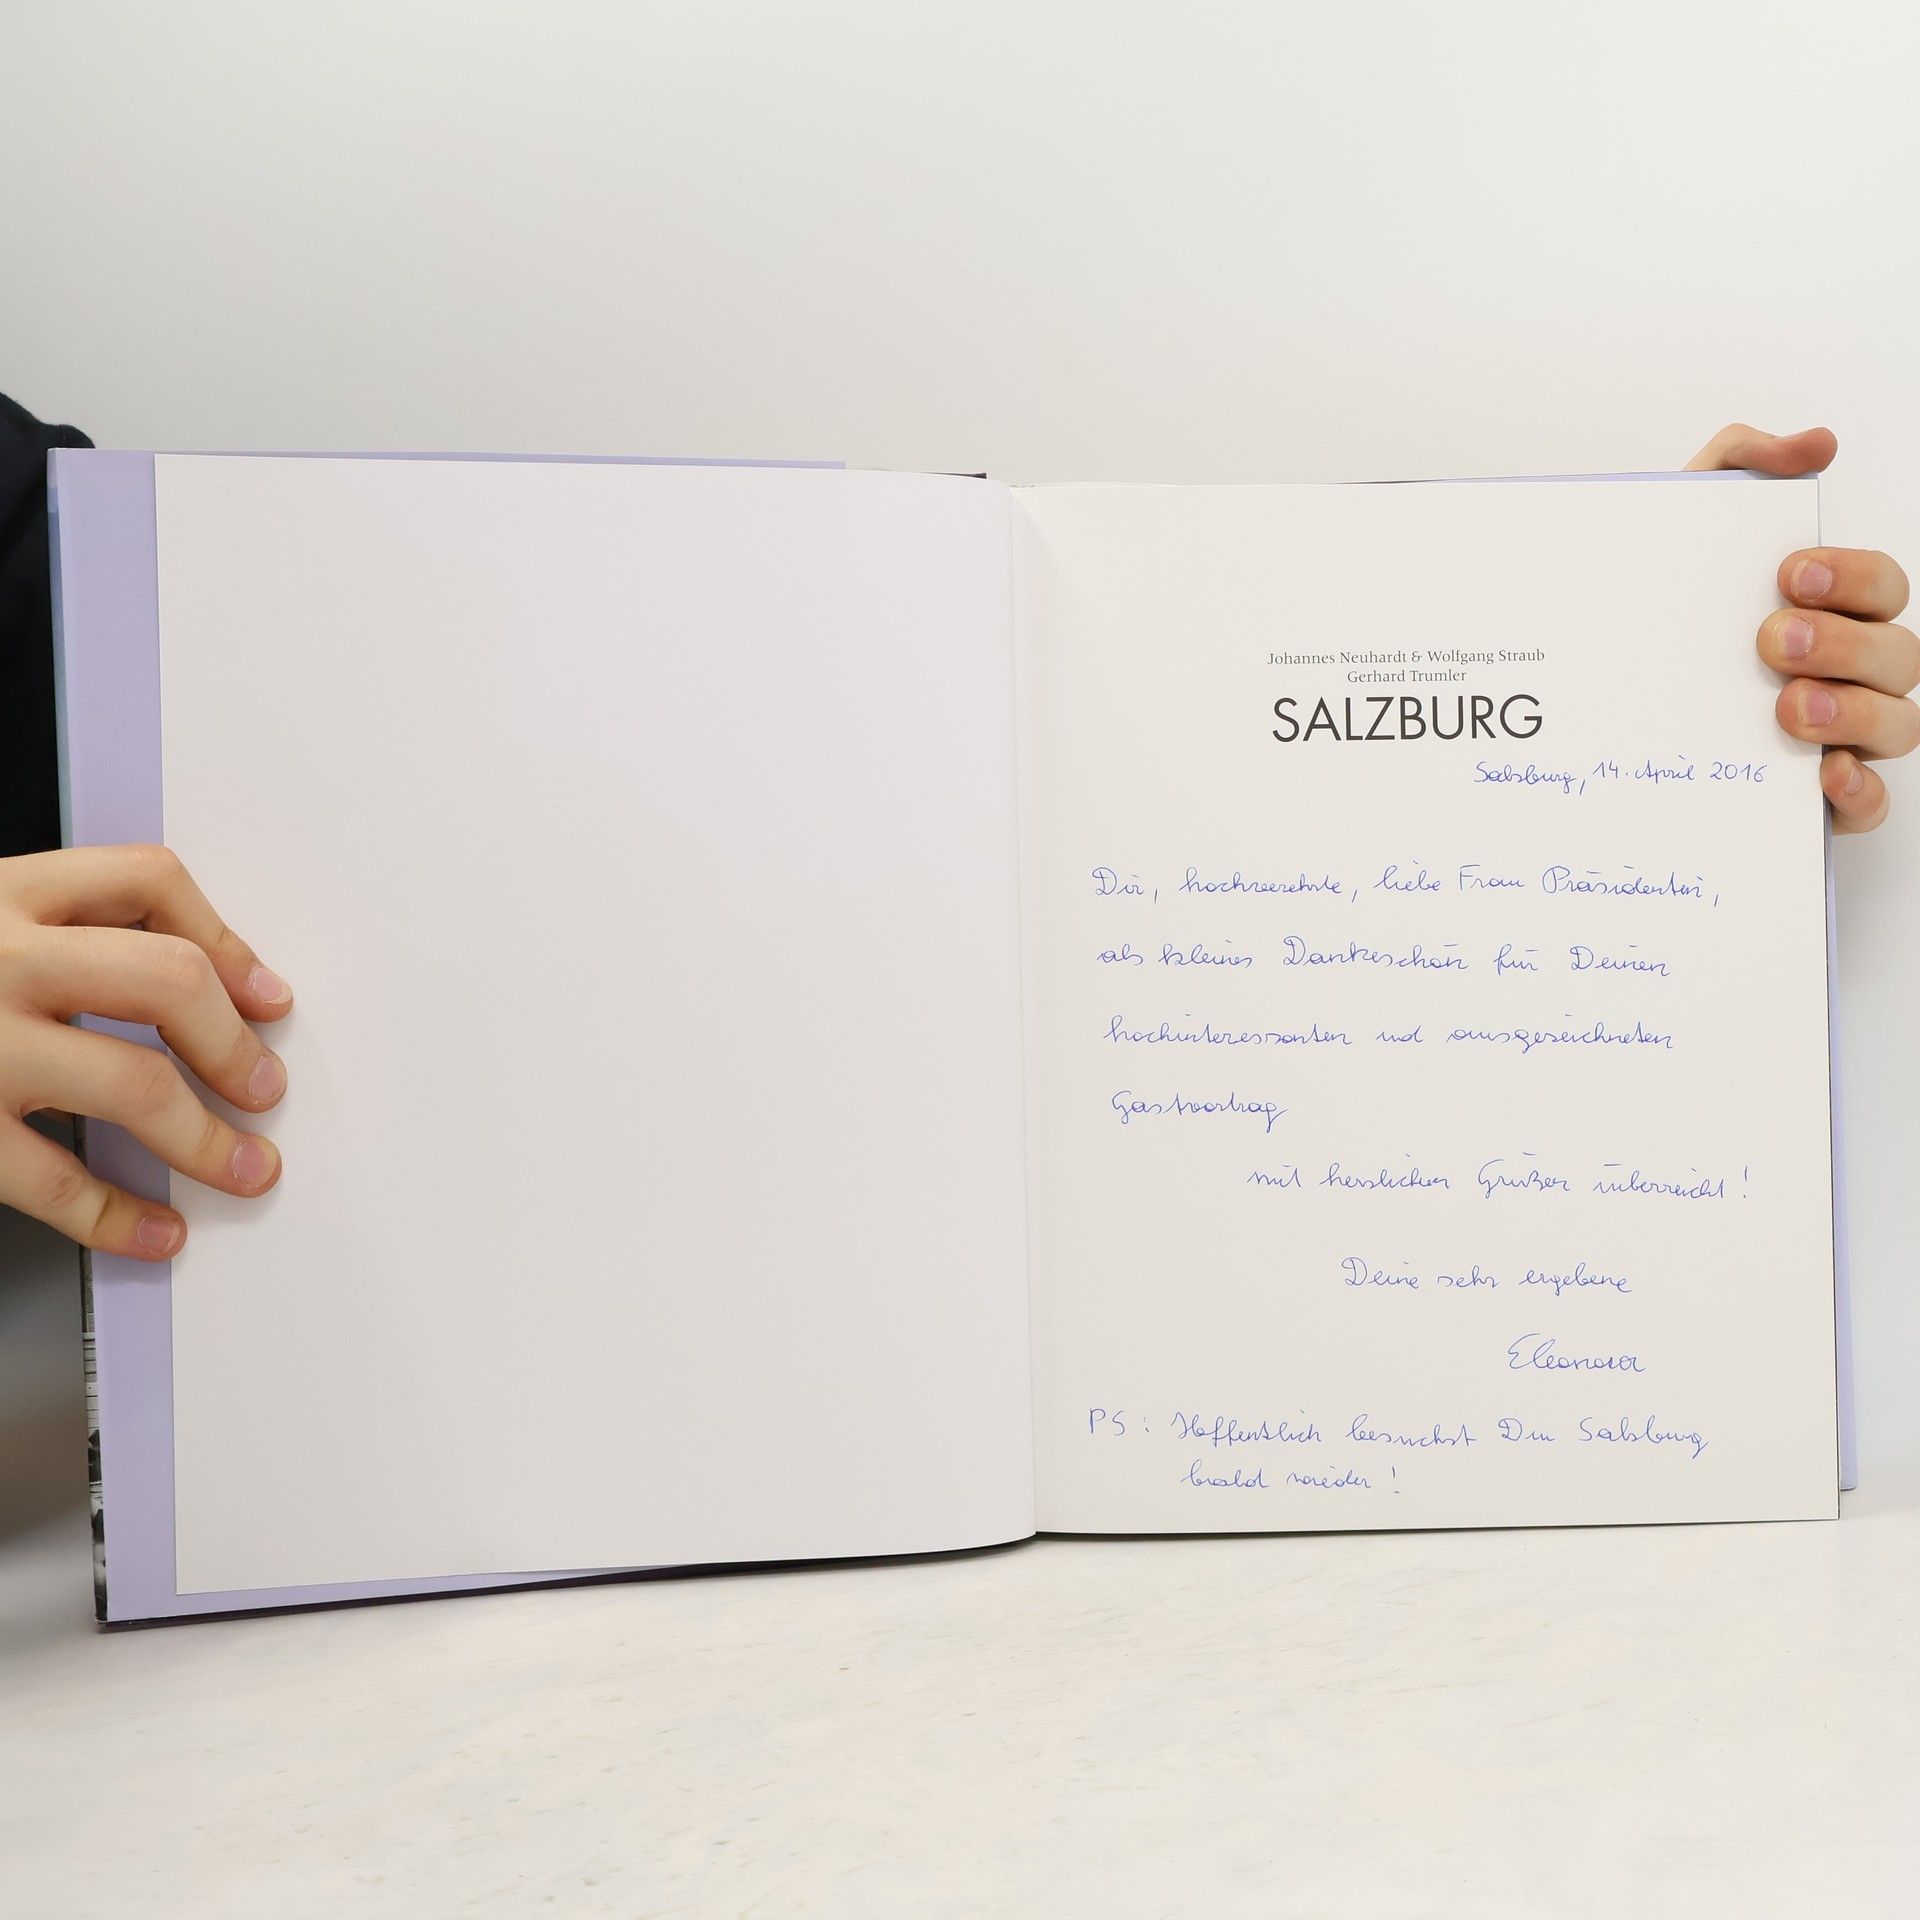 Johannes Neuhardt & Wolfgang Straub
Gerhard Trumler
SALZBURG
Salzburg, 14. April 2016
Dir, hochverehrte, liebe Frau Präsidentin,
als kleines Dankeschön für Deinen
hochinteressanten und ausgezeichneten
Gastvortrag
mit herzlichen Grüßen überreicht!
Deine sehr ergebene
Eleonora
PS: Hoffentlich besuchst Du Salzburg
bald wieder!